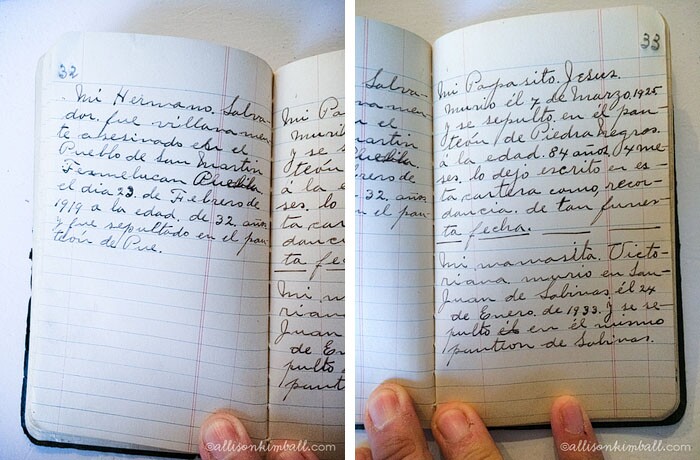 32
Mi Hermano. Salva-
dor, fue villanamen-
te asesinado en el
Pueblo de San Martin
Texmelucan Puebla
el dia 23. de Febrero de
1919 a la edad. de 32. años
y fue sepultado en el pan-
teon de Pue.
Mi Pa
murió
y se
teón
á la e
ses. lo
ta car
danci
ta fec
Mi m
riana
Juan
de En
pulto
pant
©allisonkimball.com
Salva-
namen
el
artin
Puebla
rero de
32. años
el pan-
33
Mi Papasito. Jesus.
Murio él 7 de Marzo, 1925
y se sepulto, en él pan-
teón, de Piedra Negras.
á la edad. 84 años, 4 me-
ses. lo dejó escrito en es-
ta cartera como, recor-
dancia. de tan funes-
ta fecha.
Mi, mamasita. Victo-
riana murio en San-
Juan de Sabinas, él 24
de Enero. de 1933. y se se-
pulto en él mismo
panteon de Sabinas.
©allisonkimball.com